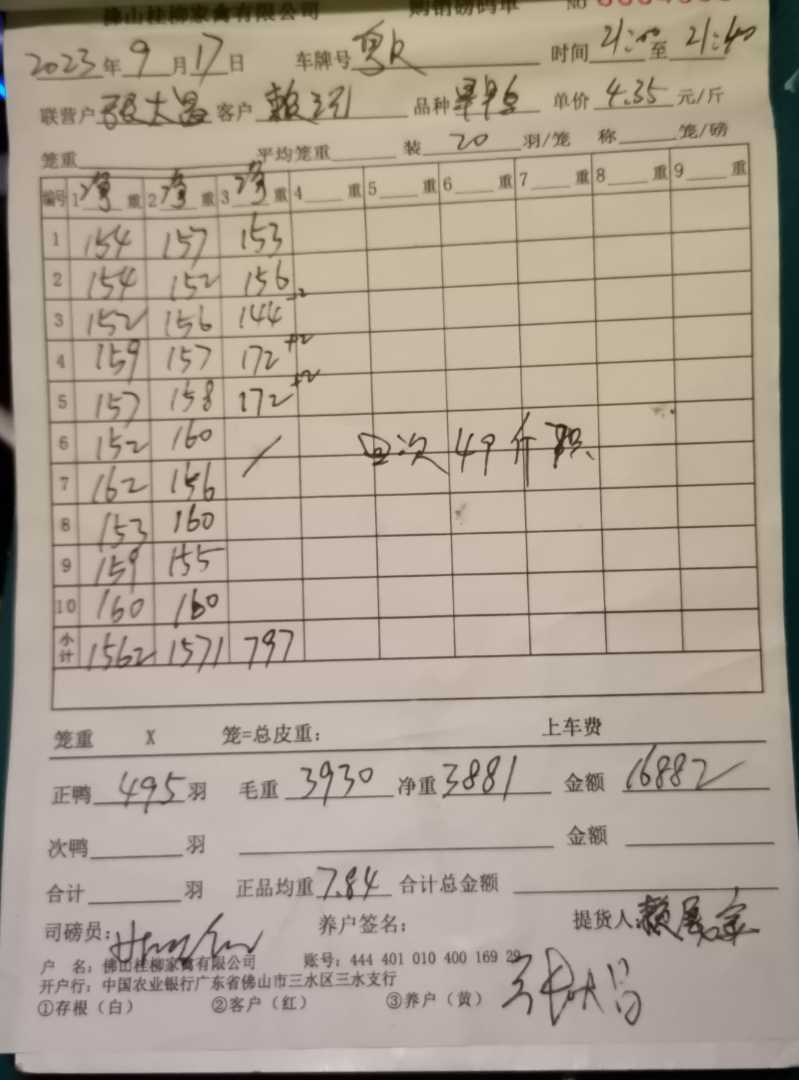 佛山桂柳家禽有限公司 购销磅码单 NO
2023年9月17日 车牌号 粤 时间21:00至21:40
联营户 张大昌 客户 赖 品种 单价 4.35 元/斤
笼重 平均笼重 装 20 羽/笼 称 笼/磅
编号 1 净 重 2 净 重 3 净 重 4 重 5 重 6 重 7 重 8 重 9 重
1 154 157 153
2 154 152 156
3 152 156 144 -2
4 159 157 172 +2
5 157 158 172 +2
6 152 160 / 次49斤
7 162 156
8 153 160
9 159 155
10 160 160
小计 1562 1571 797
笼重 X 笼=总皮重: 上车费
正鸭 495 羽 毛重 3930 净重 3881 金额 16882
次鸭 羽 金额
合计 羽 正品均重 7.84 合计总金额
司磅员: 养户签名: 提货人
户 名: 佛山桂柳家禽有限公司 账号: 444 401 010 400 169 29
开户行: 中国农业银行广东省佛山市三水区三水支行
①存根(白) ②客户(红) ③养户(黄) 张大昌